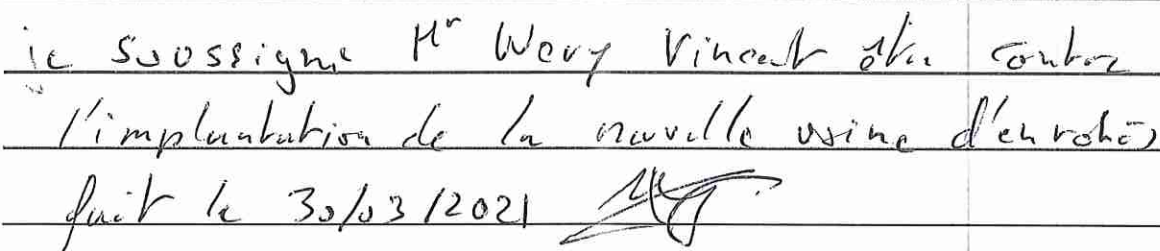 je soussigné Mr Wery Vincent être contre
l'implantation de la nouvelle usine d'enrobés
fait le 30/03/2021